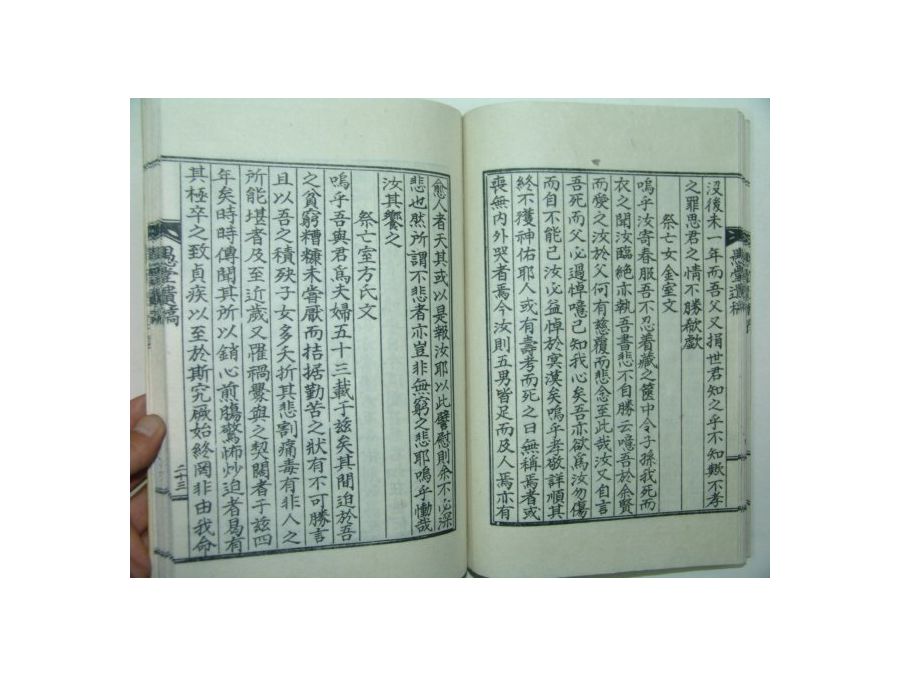 愚堂遺稿
沒後未一年而吾父又捐世君知之乎不知歟不孝
之罪思君之情不勝欷歔
祭亡女金室文
嗚乎汝寄春服吾不忍着藏之篋中令子孫我死而
衣之聞汝臨絶亦執吾書悲不自勝云噫吾於余賢
而愛之汝於父何有慈覆而悲念至此哉汝又自言
吾死而父必過悼噫已知我心矣吾亦欲爲汝勿傷
而自不能已汝必益悼於冥漠矣嗚乎孝敬詳順其
終不獲神佑耶人或有壽考而死之日無稱焉者或
喪無內外哭者焉今汝則五男皆足而及人焉亦有
愈人者天其或以是報汝耶以此譬慰則余不必深
悲也然所謂不悲者亦豈非無窮之悲耶嗚乎慟哉
汝其饗之
祭亡室方氏文
嗚乎吾與君爲夫婦五十三載于茲矣其間迫於吾
之貧窮糟糠未嘗厭而拮据勤苦之狀有不可勝言
且以吾之積殃子女多夭折其悲割痛毒有非人之
所能堪者及至近歲又罹禍釁與之契闊者于茲四
年矣時時傳聞其所以銷心煎膓驚怖炒迫者易有
其極卒之致貞疾以至於斯究厥始終罔非由我命
愚堂遺稿
二十三